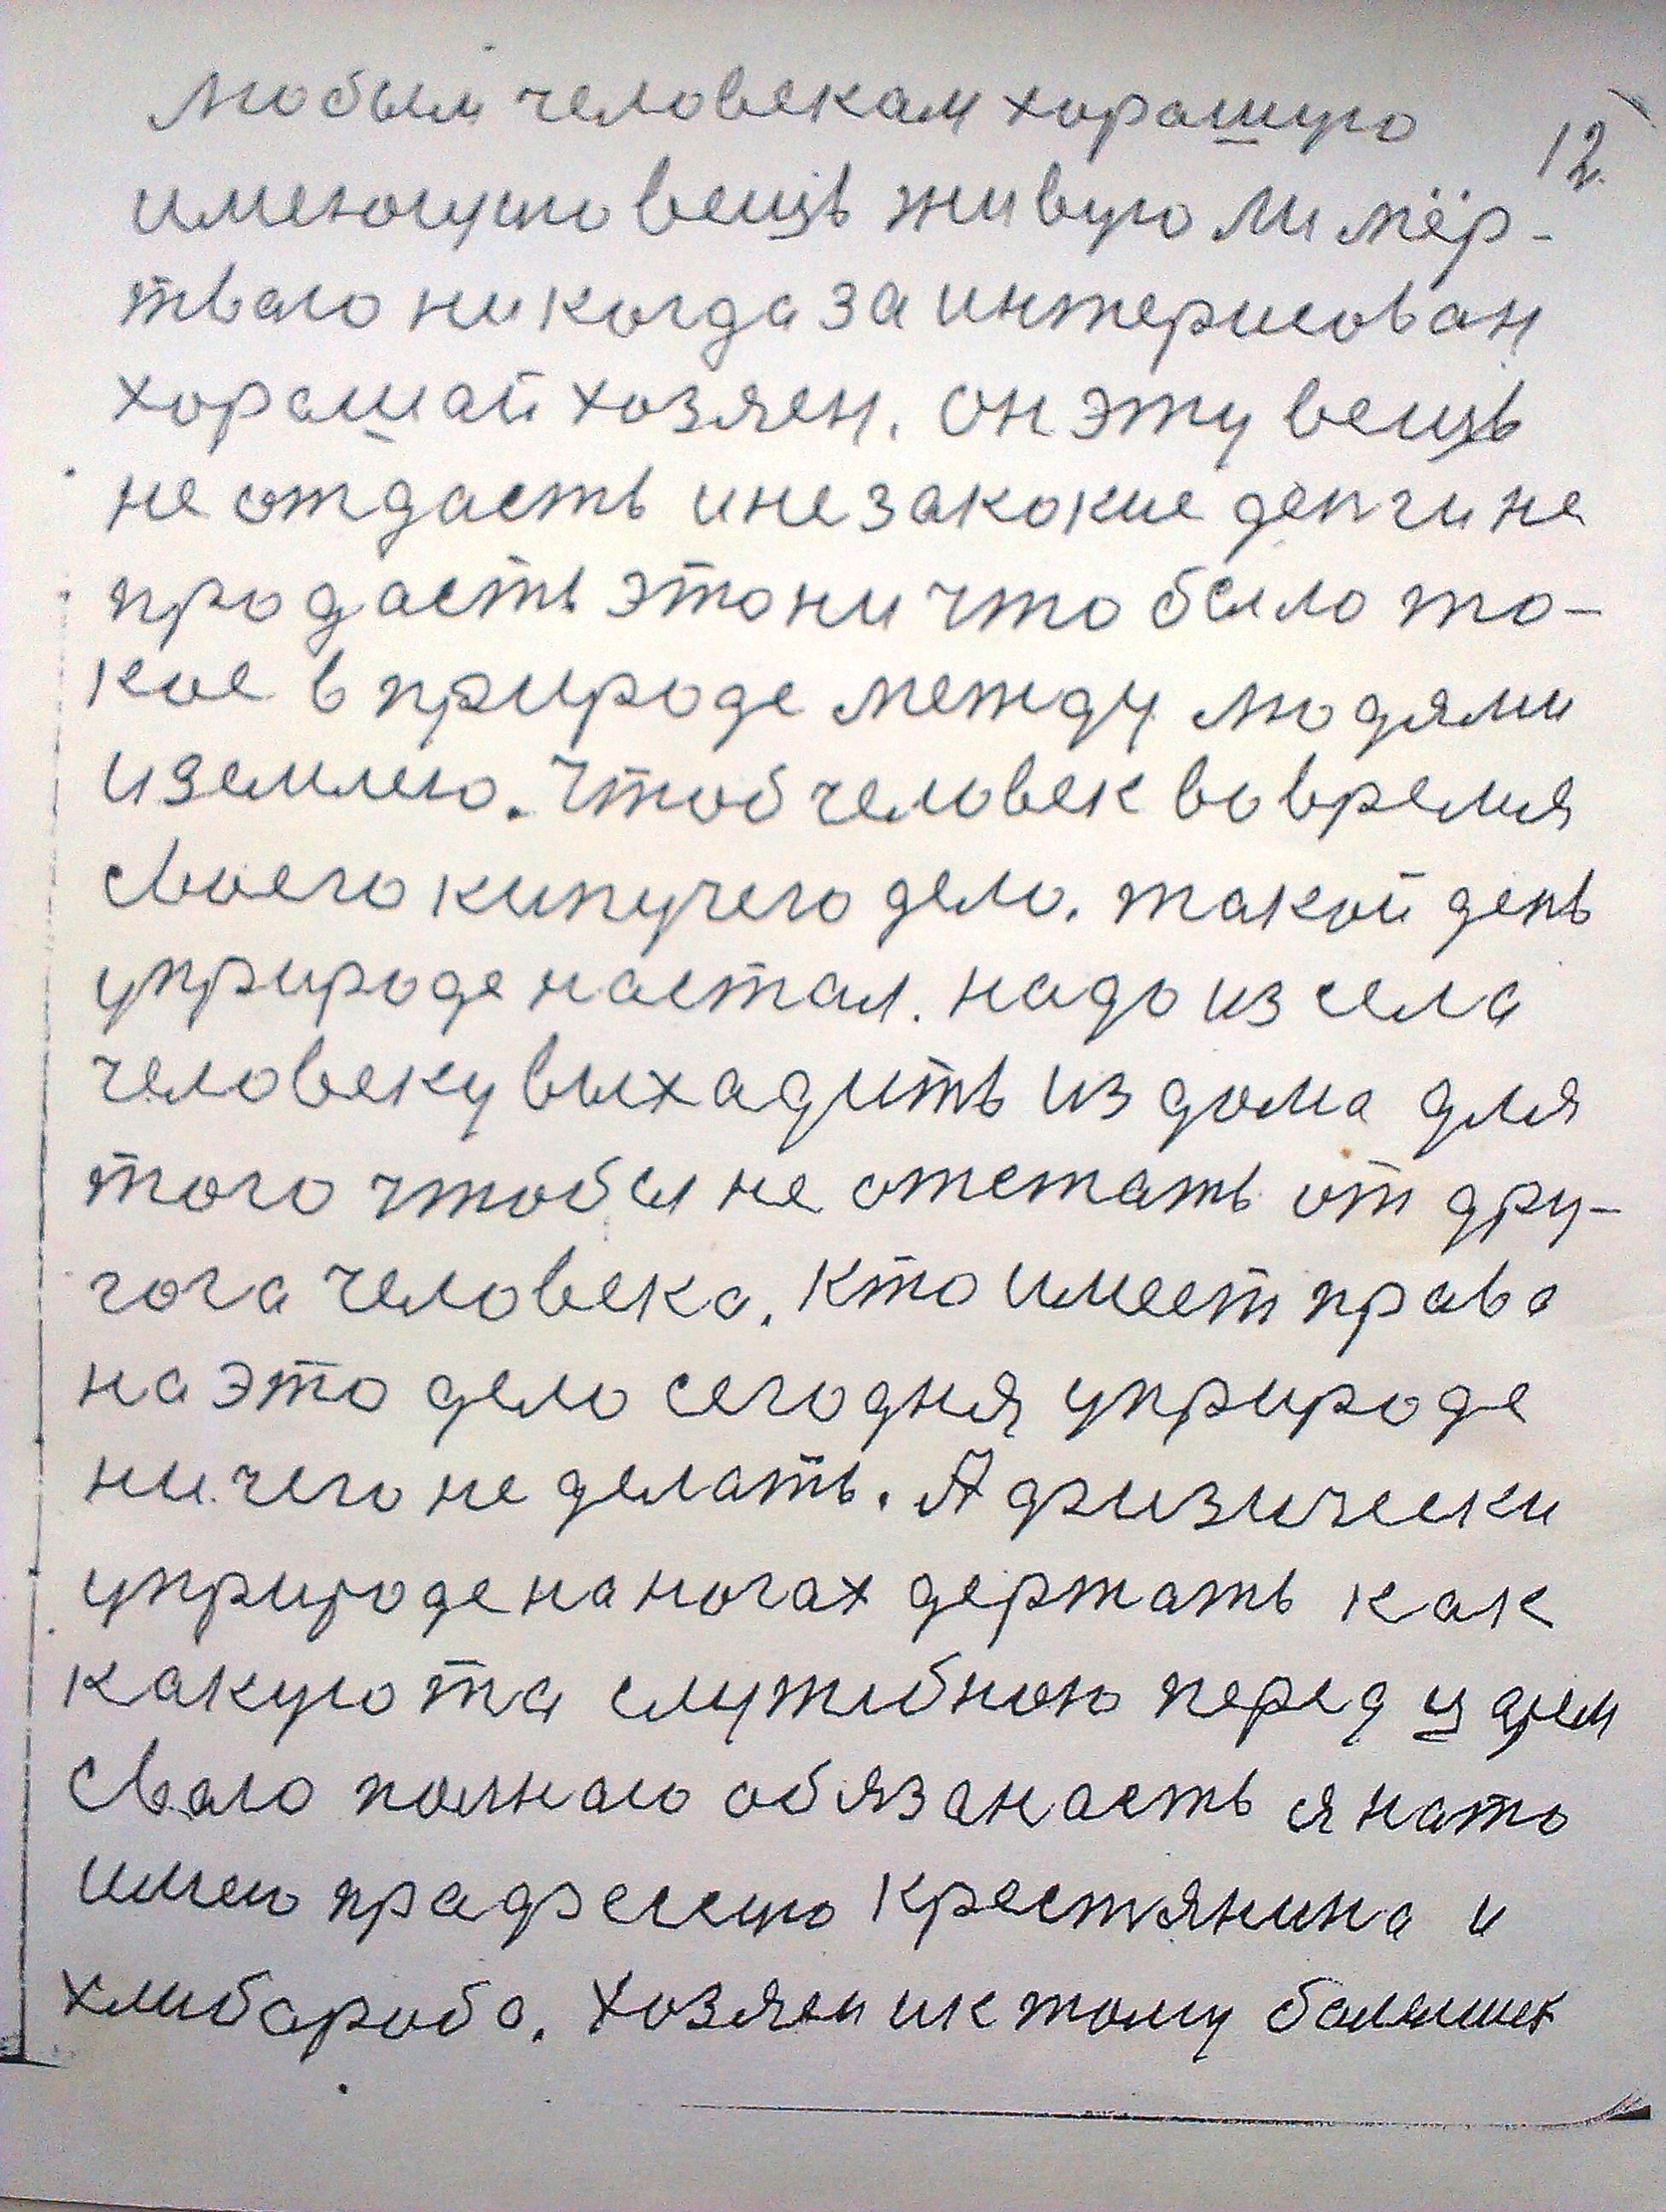 любым человекам хорашую
12.
имеющую вещь живую ли мёр-
тваю никогда заинтерисован
хорашай хозяен. Он эту вещь
не отдасть и не за кокие денги не
продасть это ни что было то-
кое в природе между людями
и землею. Чтоб человек во время
своего кипучего дело. такой день
уприроде настал. надо из села
человеку выхадить из дома для
того чтобы не отстать от дру-
гога человека. Кто имеет права
на это дело сегодня уприроде
ничего не делать. А физически
уприроде на ногах держать как
какую та служибною перед
сваю полнаю обязаность я на то
имею прафессию крестянина и
хлибароба. Хозяен и к тому